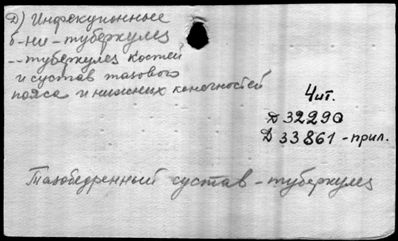 Д) Инфекционные
б-ни - туберкулез
-- туберкулез костей
и сустав тазового
пояса и нижних конечностей
Чит.
Д 32290
Д 33861 - прил.
Тазобедренный сустав - туберкулез